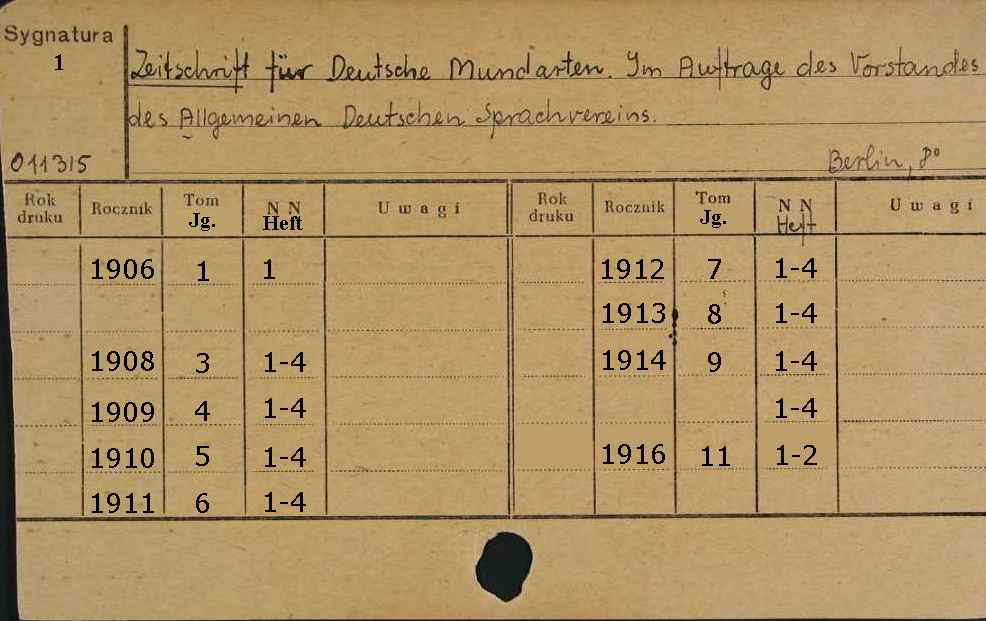 Sygnatura
1
Zeitschrift für Deutsche Mundarten. Im Auftrage des Vorstandes
des Allgemeinen Deutschen Sprachvereins.
011315 Berlin, 8º
Rok druku Rocznik Tom Jg. N N Heft Uwagi Rok druku Rocznik Tom Jg. N N Heft Uwagi
1906 1 1 1912 7 1-4
1913 8 1-4
1908 3 1-4 1914 9 1-4
1909 4 1-4 1-4
1910 5 1-4 1916 11 1-2
1911 6 1-4